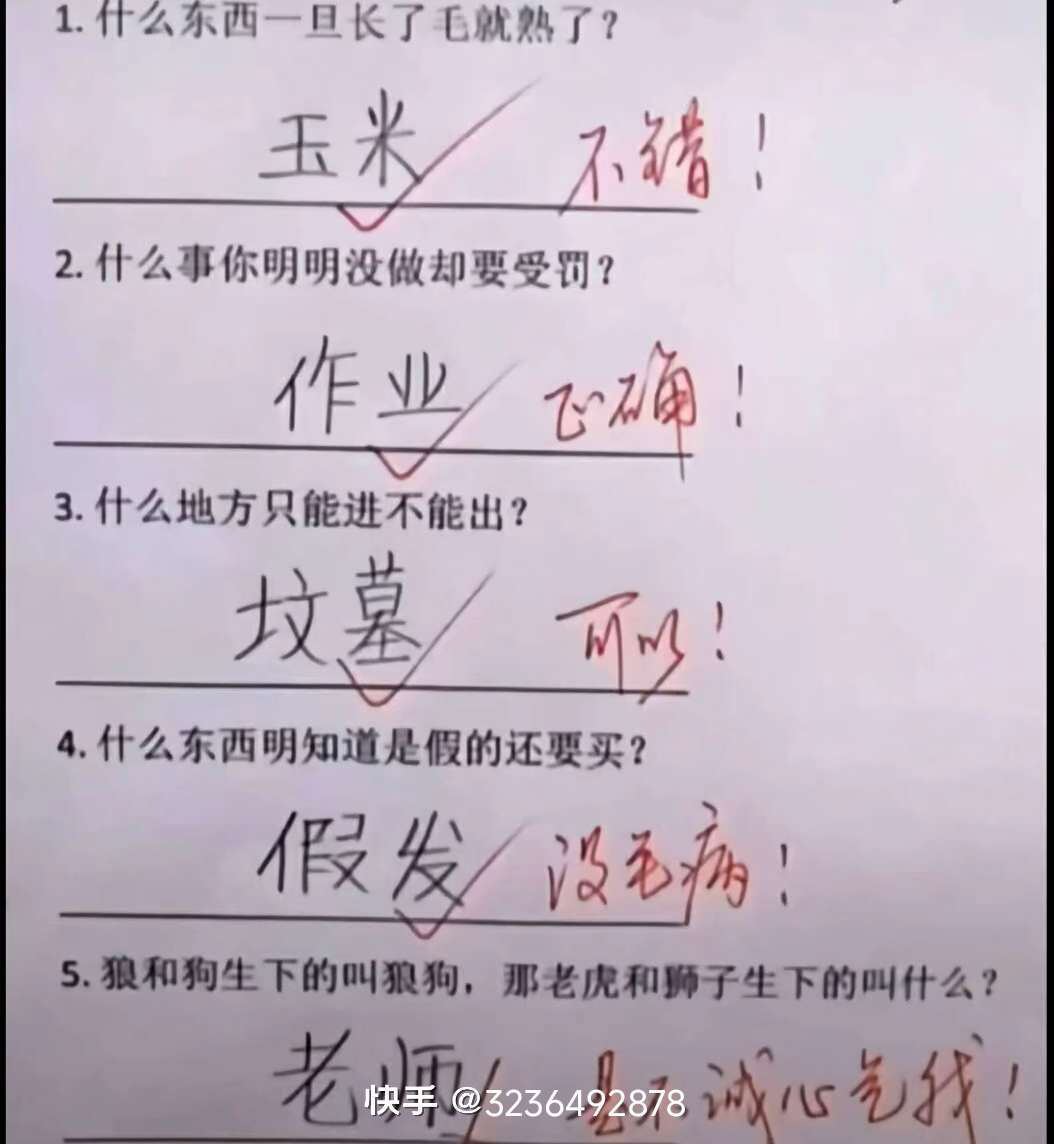 1. 什么东西一旦长了毛就熟了？
玉米 不错！
2. 什么事你明明没做却要受罚？
作业 正确！
3. 什么地方只能进不能出？
坟墓 可以！
4. 什么东西明知道是假的还要买？
假发 没毛病！
5. 狼和狗生下的叫狼狗，那老虎和狮子生下的叫什么？
老师 是不诚心气我！
快手 @3236492878